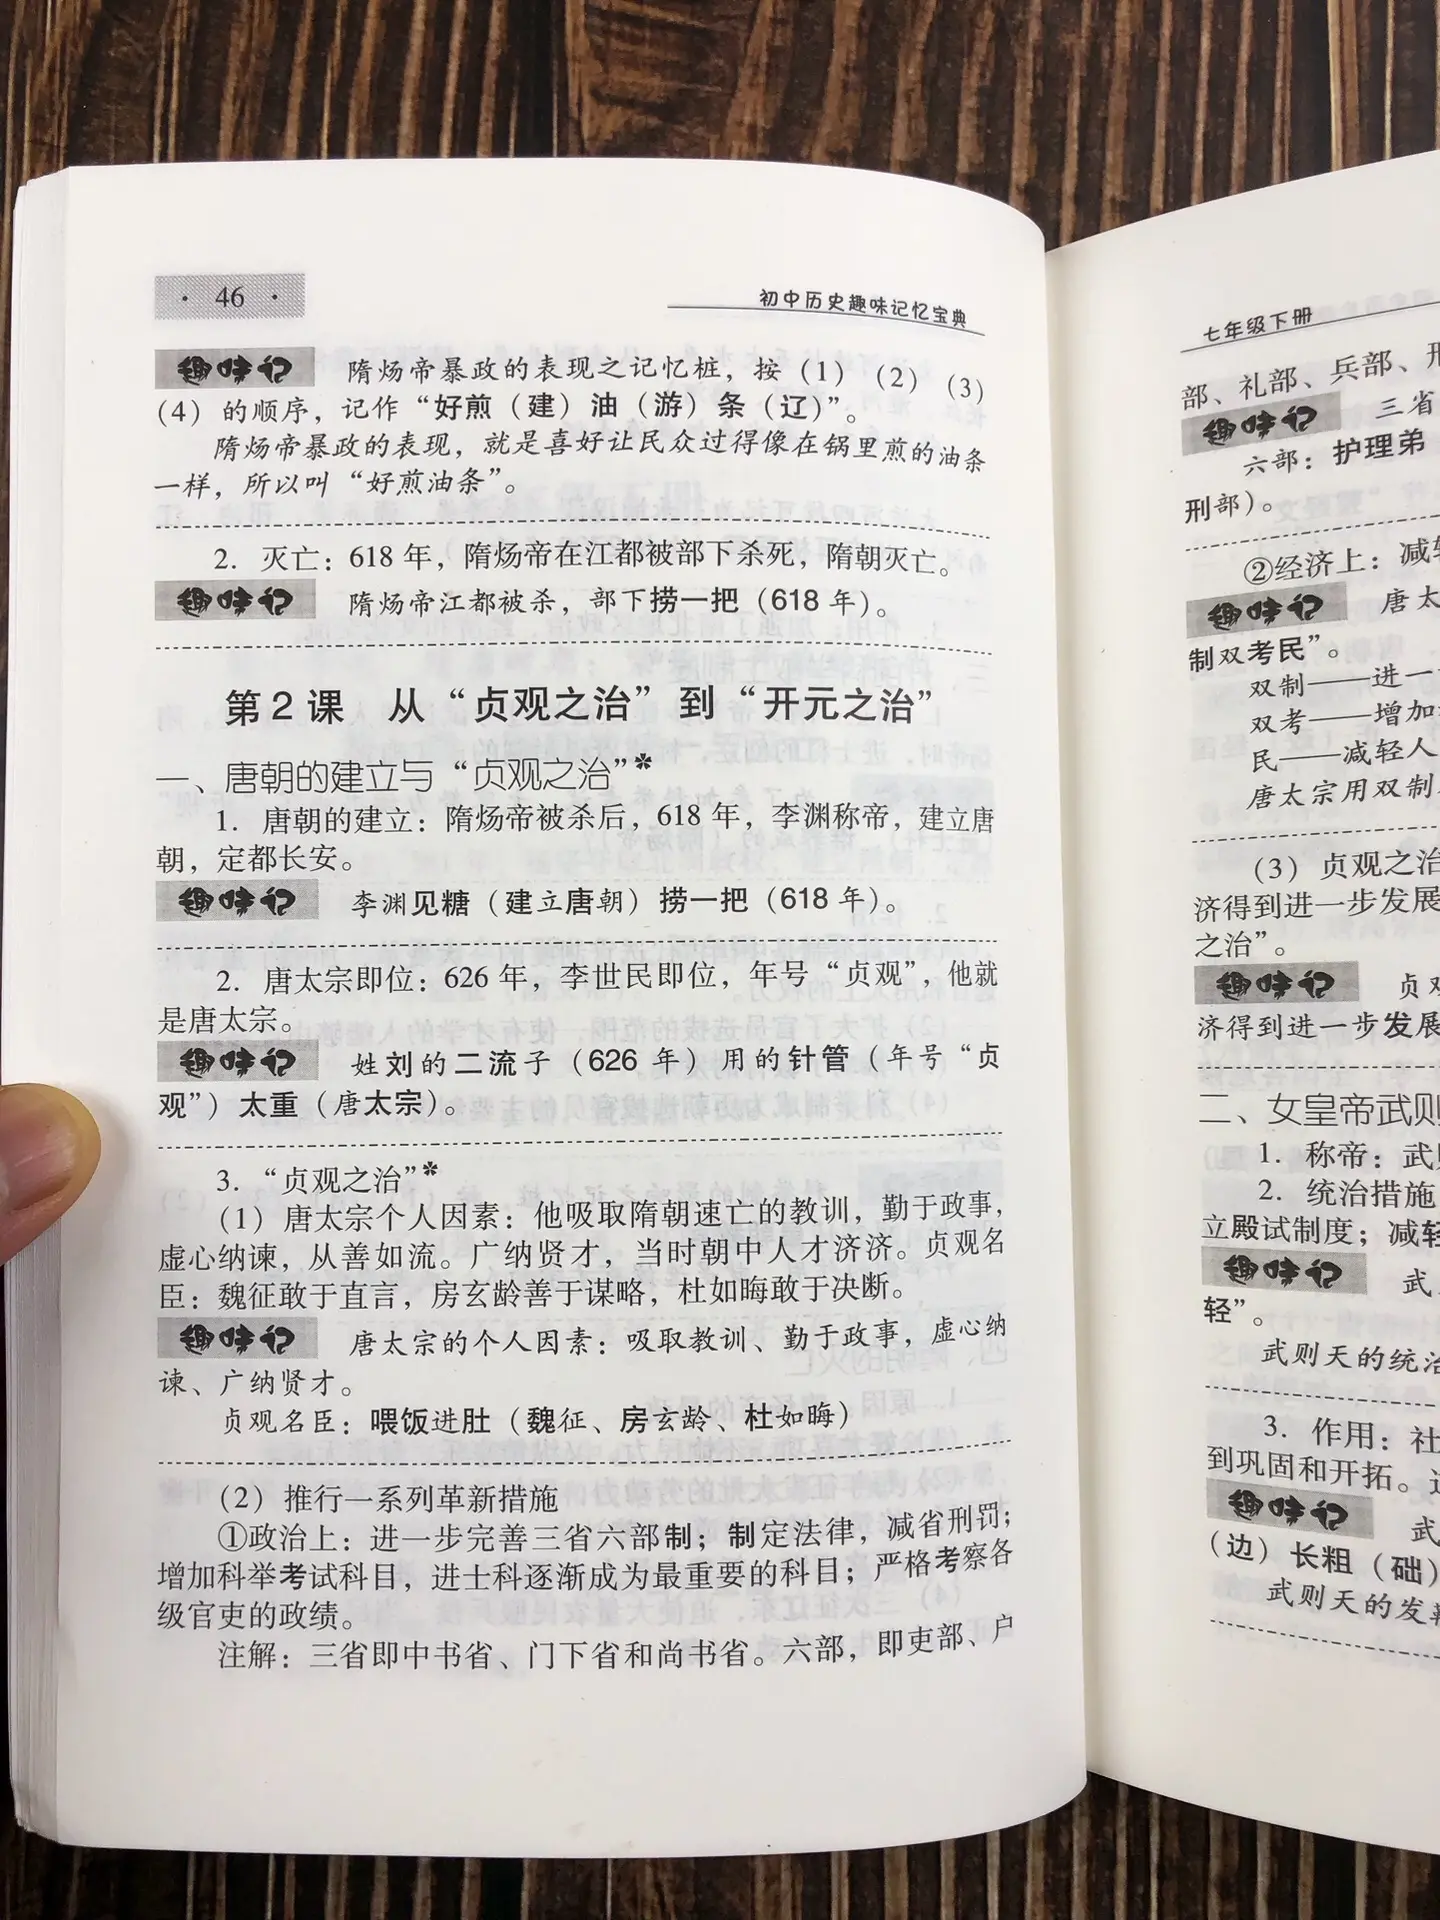 · 46 ·
初中历史趣味记忆宝典
趣味记 隋炀帝暴政的表现之记忆桩，按（1）（2）（3）
（4）的顺序，记作“好煎（建）油（游）条（辽）”。
隋炀帝暴政的表现，就是喜好让民众过得像在锅里煎的油条
一样，所以叫“好煎油条”。
2. 灭亡：618 年，隋炀帝在江都被部下杀死，隋朝灭亡。
趣味记 隋炀帝江都被杀，部下捞一把（618 年）。
第 2 课 从“贞观之治”到“开元之治”
一、唐朝的建立与“贞观之治”*
1. 唐朝的建立：隋炀帝被杀后，618 年，李渊称帝，建立唐
朝，定都长安。
趣味记 李渊见糖（建立唐朝）捞一把（618 年）。
2. 唐太宗即位：626 年，李世民即位，年号“贞观”，他就
是唐太宗。
趣味记 姓刘的二流子（626 年）用的针管（年号“贞
观”）太重（唐太宗）。
3. “贞观之治”*
（1）唐太宗个人因素：他吸取隋朝速亡的教训，勤于政事，
虚心纳谏，从善如流。广纳贤才，当时朝中人才济济。贞观名
臣：魏征敢于直言，房玄龄善于谋略，杜如晦敢于决断。
趣味记 唐太宗的个人因素：吸取教训、勤于政事，虚心纳
谏、广纳贤才。
贞观名臣：喂饭进肚（魏征、房玄龄、杜如晦）
（2）推行一系列革新措施
①政治上：进一步完善三省六部制；制定法律，减省刑罚；
增加科举考试科目，进士科逐渐成为最重要的科目；严格考察各
级官吏的政绩。
注解：三省即中书省、门下省和尚书省。六部，即吏部、户
七年级下册
部、礼部、兵部、刑
趣味记 三省
六部：护理弟
刑部）。
②经济上：减轻
趣味记 唐太
制双考民”。
双制——进一
双考——增加
民——减轻人
唐太宗用双制
（3）贞观之治
济得到进一步发展
之治”。
趣味记 贞观
济得到进一步发展
二、女皇帝武则
1. 称帝：武则
2. 统治措施
立殿试制度；减轻
趣味记 武
轻”。
武则天的统治
3. 作用：社
到巩固和开拓。
趣味记 武
（边）长粗（础）
武则天的发